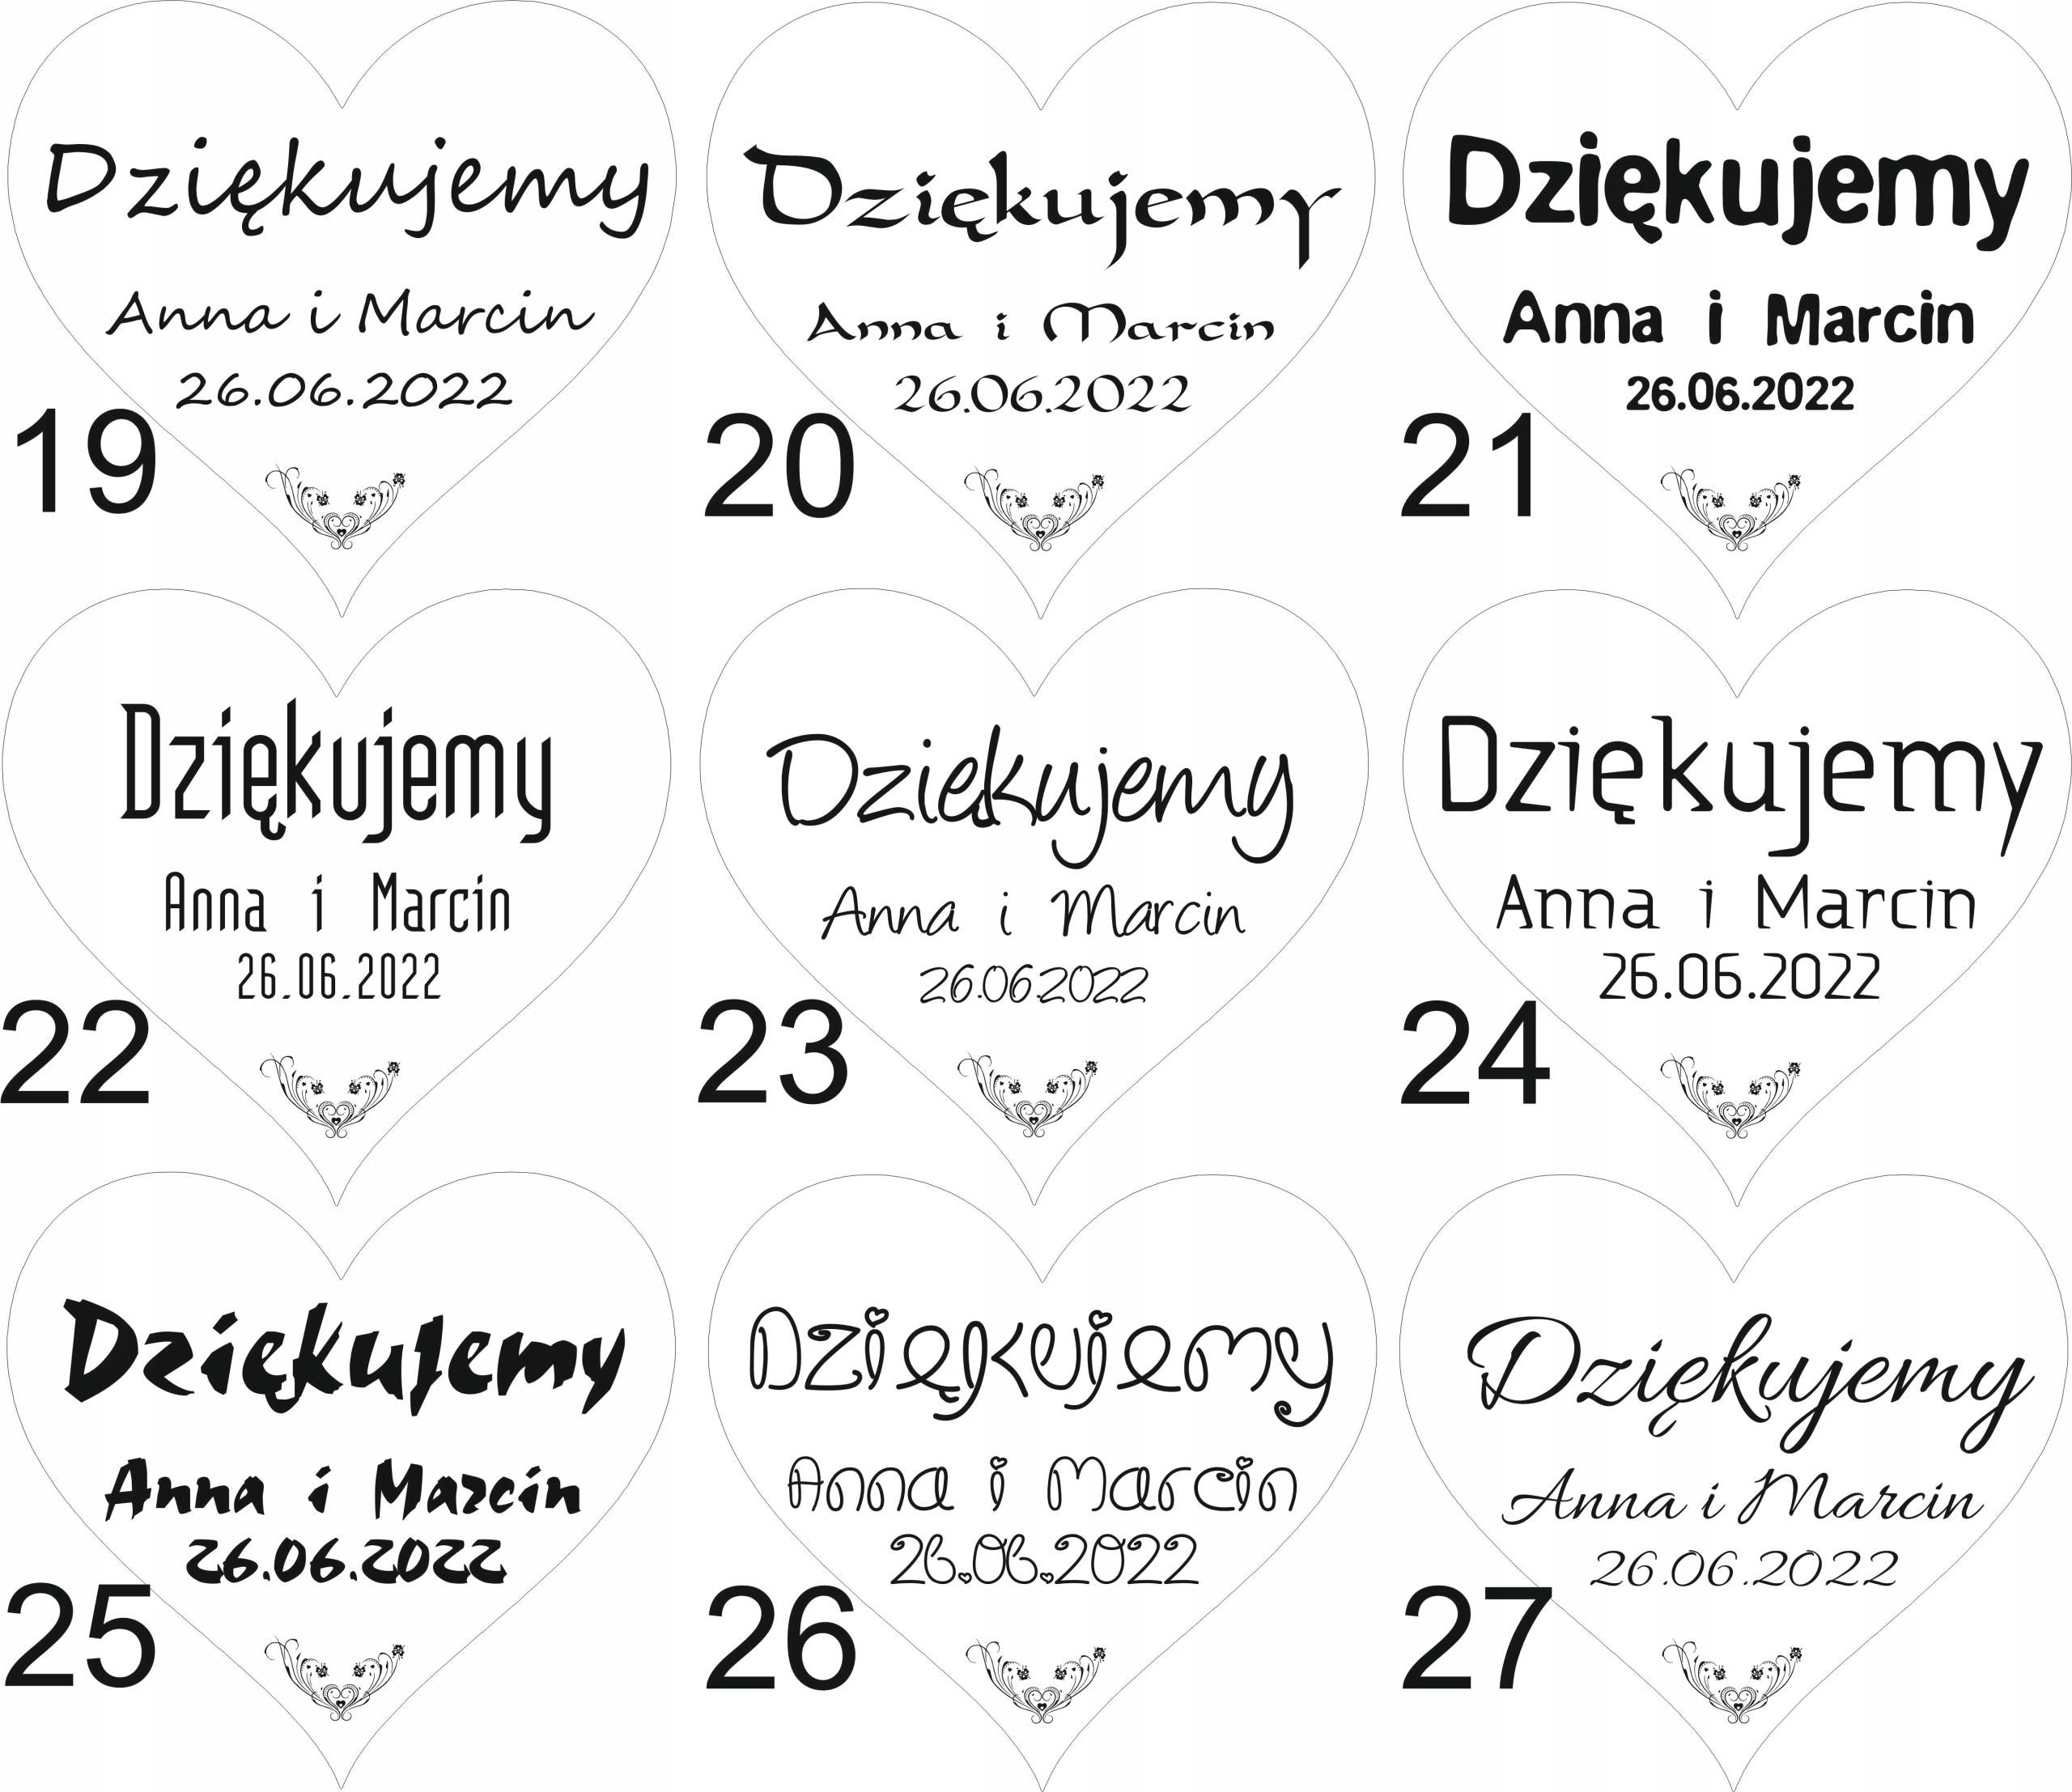 Dziękujemy
Anna i Marcin
26.06.2022
19
Dziękujemy
Anna i Marcin
26.06.2022
20
Dziękujemy
Anna i Marcin
26.06.2022
21
Dziękujemy
Anna i Marcin
26.06.2022
22
Dziękujemy
Anna i Marcin
26.06.2022
23
Dziękujemy
Anna i Marcin
26.06.2022
24
Dziękujemy
Anna i Marcin
26.06.2022
25
Dziękujemy
Anna i Marcin
26.06.2022
26
Dziękujemy
Anna i Marcin
26.06.2022
27